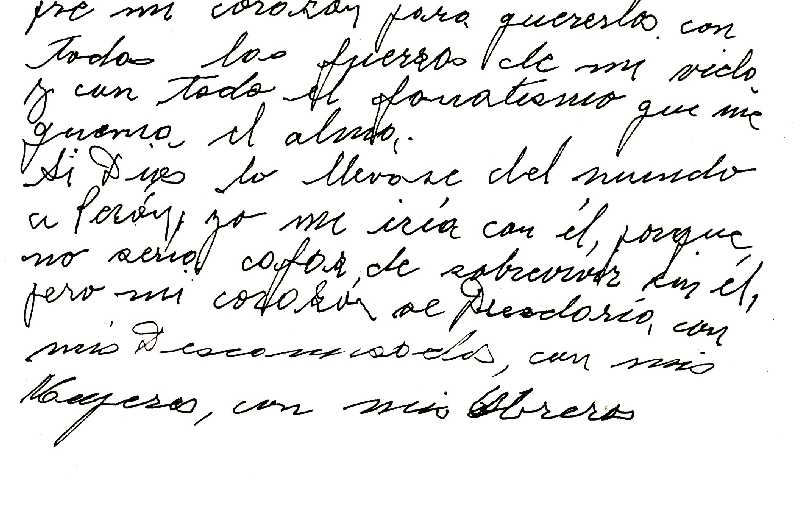 pre mi corazón para quererlo con
todas las fuerzas de mi vida
y con todo el fanatismo que me
quema el alma.
Si Dios lo llevase del mundo
a Perón, yo me iría con él, porque
no seria capaz de sobrevivir sin él,
pero mi corazón se quedaría con
mis Descamisados, con mis
Mujeres, con mis Obreros